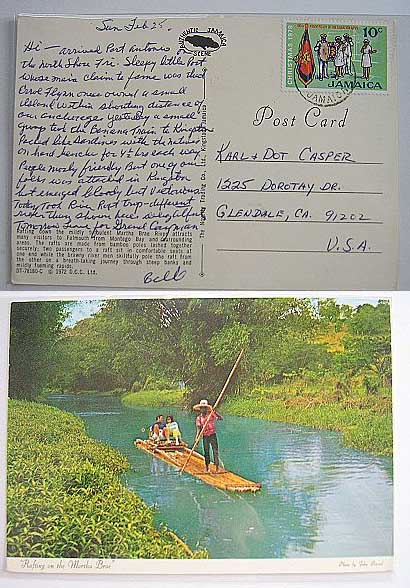 Sun Feb 25.
Hi - arrived Port Antonio on
the North Shore Fri. Sleepy little Port
whose main claim to fame was that
Errol Flynn once owned a small
island within shouting distance of
our anchorage. Yesterday a small
group took the Banana Train to Kingston
Packed like Sardines with the natives
on hard benches for 4½ hrs each way
People mostly friendly But one of our
folks was attacked in Kingston
but emerged bloody but Victorious.
Today Took River Raft trip - different
river than shown here
Tomorrow leave for Grand Cayman
Bill
Rafting down the mildly turbulent Martha Brae River attracts
many visitors to Falmouth from Montego Bay and surrounding
areas. The rafts are made from bamboo poles lashed together
securely; two passengers to a raft sit in comfortable seats at
one end while the brawny river men skillfully pole the raft from
the other on a breath-taking journey through steep banks and
mildly foaming rapids.
DT-78180-C © 1972 D.C.C. Ltd.
AUTHENTIC JAMAICA
SCENE
The Novelty Trading Co., Ltd., Kingston, Jamaica
CHRISTMAS 1972
10c
JAMAICA
JAMAICA
Post Card
KARL & DOT CASPER
1225 DOROTHY DR.
GLENDALE, CA. 91202
U.S.A.
"Rafting on the Martha Brae"
Photo by John